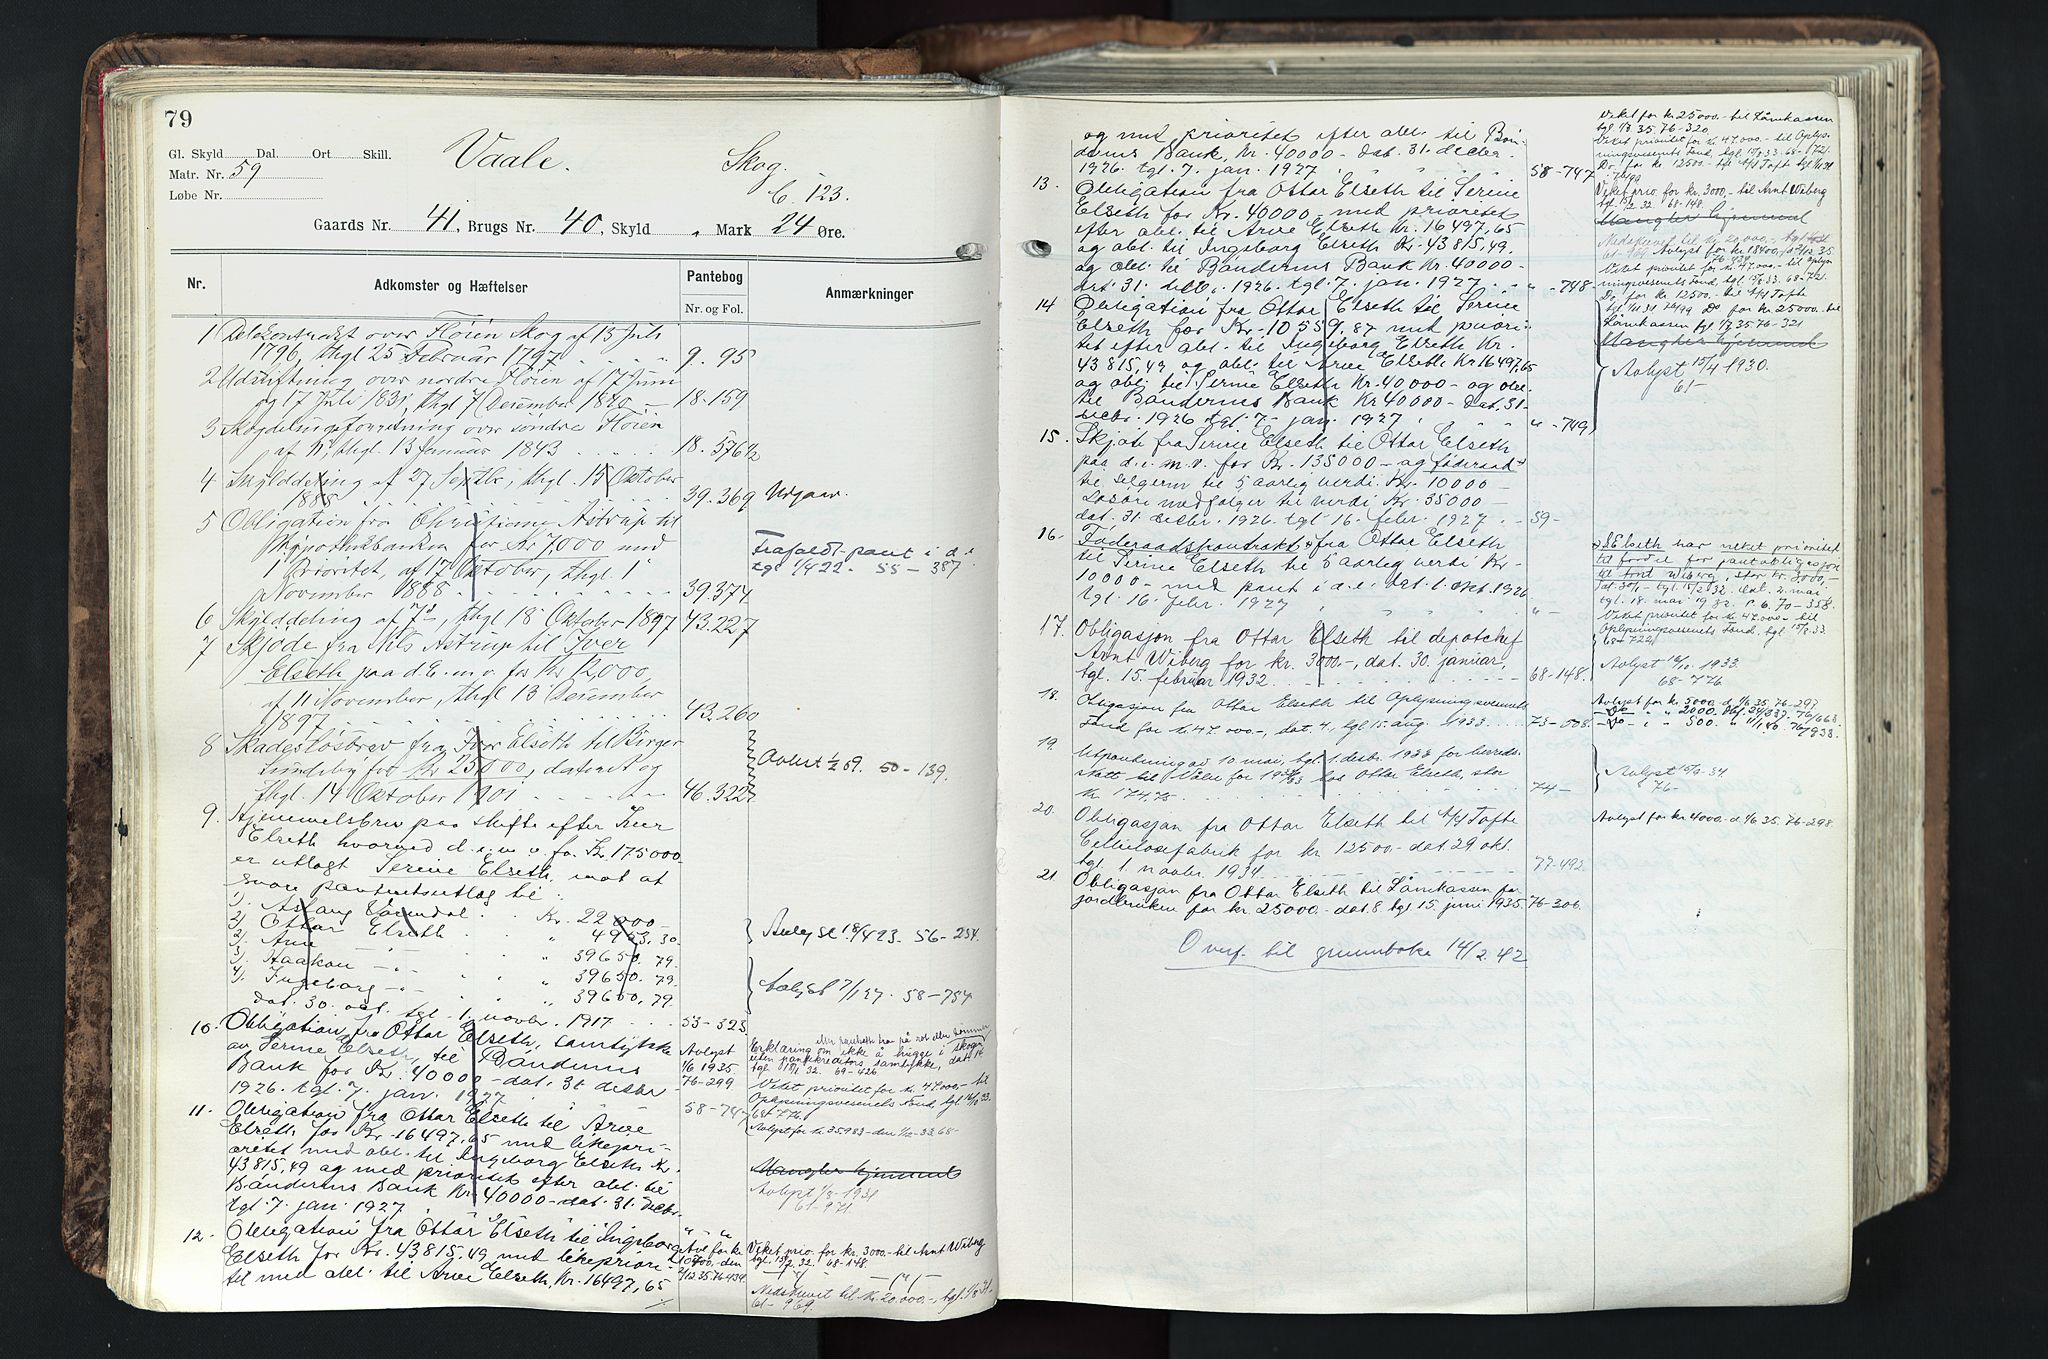 79
Gl. Skyld Dal. Ort Skill.
Matr. Nr. 59
Løbe Nr.
Vaale.
Skog.
C. 123.
Gaards Nr. 41, Brugs Nr. 40, Skyld " Mark 24 Øre.
Nr.
Adkomster og Hæftelser
Pantebog
Nr. og Fol.
Anmærkninger
1 Delekontrakt over Fløien Skog af 15 Juli
1796, thgl 25 Februar 1797 9. 95
2 Udskiftning over nordre Fløien af 17 Juni
og 17 Juli 183 , thgl 7 December 1840 18. 159
3 Skogdelingsforretning over søndre Fløien
af , thgl. 13 Januar 1843 18. 576
4 Skylddeling af 27 Septbr, thgl. 15 Oktober
1888 39. 369 Udgaar.
5 Obligation fra Christiane Astrup til
Hypothekbanken for Kr 7,000 med
1 Prioritet, af 17 Oktober, thgl 1
November 1888 39.374
Frafaldt pant i d. i
tgl 1/4 22. 55 - 387
6 Skylddeling af 7 , thgl 18 Oktober 1897 43.227
7 Skjøde fra Nils Astrup til Iver
Elseth paa d. E. m. v. for Kr 12,000,
af 11 November, thgl 13 December
1897 43.260
8 Skadesløsbrev fra Iver Elseth til Birger
Lundeby for Kr 25,000, dateret og
thgl. 14 Oktober 1901 46.322
Avlest 50 - 139.
9. Hjemmelsbrev paa skifte efter Iver
Elseth hvorved d. i. m. v. for Kr. 175000
er utlagt Serine Elseth mot at
svare pantutlæg til
1). Aslaug Kr. 22000 -
2). Ottar Elseth " 4953. 30.
2). Arne " 39650. 79.
3). Haakon " 39650. 79.
4). Ingeborg " 39650. 79
dat. 30. okt. tgl. 1. novbr. 1917 53 - 323
Avlyst 18/4 23. 56 - 254.
Avlyst 7/1 27. 58 - 754
10. Obligation fra Ottar Elseth, samtykke
av Serine Elseth, til Bøndernes
Bank for Kr. 40000 - dat. 31 decbr
1926. tgl. 7. jan. 1927
Avlyst
1/6 1935
76-299
Erklæring om ikke å hugge i skogen
uten pantkreditors samtykke, dat.
tgl. 32. 69 - 426
Veket prioritet for kr. 47.000.- til
Oplysningsvesenets Fond, tgl. 33.
68 + 776.
11. Obligation fra Ottar Elseth til Arne 58 - 747
Elseth for Kr. 16497,65 med likepri-
oritet med obl. til Ingeborg Elseth Kr.
43815,49 og med prioritet efter obl. til
Bøndernes Bank Kr. 40000 - dat. 31. decbr.
tgl. 7. jan. 1927
Avlyst for kr. 35983 - den 33. 68 -
Mangler hjemmel
Avlyst 1/8 - 1931
61 - 971
12. Obligation fra Ottar Elseth til Ingeborg
Elseth for Kr. 43815.49 med likepriori-
til med obl. til Arne Elseth, Kr. 16497,65
Avl. for kr.
10400, - den
2/12 35. 76-434
Veket prio. for kr. 3000.- til Arnt Wiberg
tgl. 15/2 32. 68-148.
Nedskrevet til kr. 20.000.-, tgl. 1/8 31.
61 - 969
og med prioritet efter obl. til Bøn-
dernes Bank, Kr. 40000 - dat. 31. decbr.
1926. tgl. 7. jan. 1927 58 - 747
Veket for kr 25000.- til Lånekassen
tgl 35. 76-320
Veket prioritet for kr. 47.000.- til Oplys-
ningsvesenets Fond, tgl. 15/8 33. 68 - 721.
Do. for kr 12500.- til A/S Tofte tgl 1/11 34
Veket prio. for kr. 3000.- til Arnt Wiberg
tgl. 15/2 32 68-148.
Mangler hjemmel
13. Obligation fra Ottar Elseth til Serine
Elseth for Kr. 40000 - med prioritet
efter obl. til Arne Elseth Kr. 16497,65
og obl. til Ingeborg Elseth Kr. 43815,49.
og obl. til Bøndernes Bank Kr. 40000 -
dat. 31. decbr. 1926. tgl. 7. jan. 1927 " - 748 -
Nedskrevet til kr 20.000.-
Avlyst for kr 18400 2/12 35
Veket prioritet for kr. 47.000.- til Oplys
ningsvesenets Fond, tgl. 15/8 33. 68-721.
Do for kr 12500.- til A/S Tofte
tgl 1/11 34 Do for kr 25000.- til
Lånekassen tgl 35. 76-321
Mangler hjemmel
14 Obligation fra Ottar Elseth til Serine
Elseth for Kr. 10559.87 med priori-
tet efter obl. til Ingeborg Elseth Kr.
43815,49 og obl. til Arne Elseth Kr 16497,65
og obl. til Serine Elseth Kr. 40000 - og obl.
til Bøndernes Bank Kr 40000 - dat. 31.
decbr. 1926 tgl. 7. jan. 1927 " - 749
Avlyst 15/4 1930.
61 -
15. Skjøte fra Serine Elseth til Ottar Elseth
paa d. i. m. v. for Kr. 135000 - og føderaad
til selgern til 5 aarlig verdi Kr. 10000 -
Løsøre medfølger til verdi Kr. 35000 -
dat. 31. decbr. 1926. tgl 16. febr. 1927 59 -
16. Føderaadskontrakt fra Ottar Elseth
til Serine Elseth til 5 aarlig verdi Kr.
10000 - med pant i d. i. dat. 1. okt. 1926
tgl. 16. febr. 1927 " -
S. Elseth har veket prioritet
til fordel for pantobligasjon
til Arnt Wiberg, stor kr. 3000,-
dat. 30/1 - tgl. 15/2 32. dat. 2. mai
tgl. 18. mai 1932. P. b. 70 - 358.
Veket prioritet for kr. 47.000.- til
Oplysningsvesenets Fond, tgl. 15/8 33.
68 + 722
17. Obligasjon fra Ottar Elseth til depotchef
Arnt Wiberg for kr. 3000.-, dat. 30. januar,
tgl. 15. februar 1932. 68 - 148.
Avlyst 16/10 1933.
68 - 776
18. Obligasjon fra Ottar Elseth til Oplysningsvesenets
Fond for kr. 47.000.-, dat. 4., tgl 15. aug 1933 73 - 008.
Avlyst for kr. 5000 d. 1/6 35. 76-297
Do " 2000. 76/663.
Do " 500. 76/938.
19. Utpantning av 10. mai, tgl. 1. desbr. 1933 for herreds-
skatt til Våler for 1932/33 hos Ottar Elseth, stor
kr. 174,75 74 -
Avlyst 34
76 -
20. Obligasjon fra Ottar Elseth til A/S Tofte
Cellulosefabrik for kr 12500 - dat. 29 okt.
tgl. 1 novbr. 1934 77-492.
Avlyst for kr 4000.- d. 1/6 35. 76-298.
21 Obligasjon fra Ottar Elseth til Lånekassen for
jordbrukere for kr. 25000.- dat. 8. tgl 15. juni 1935. 76-306.
Overf. til grunnboka 14/2 42